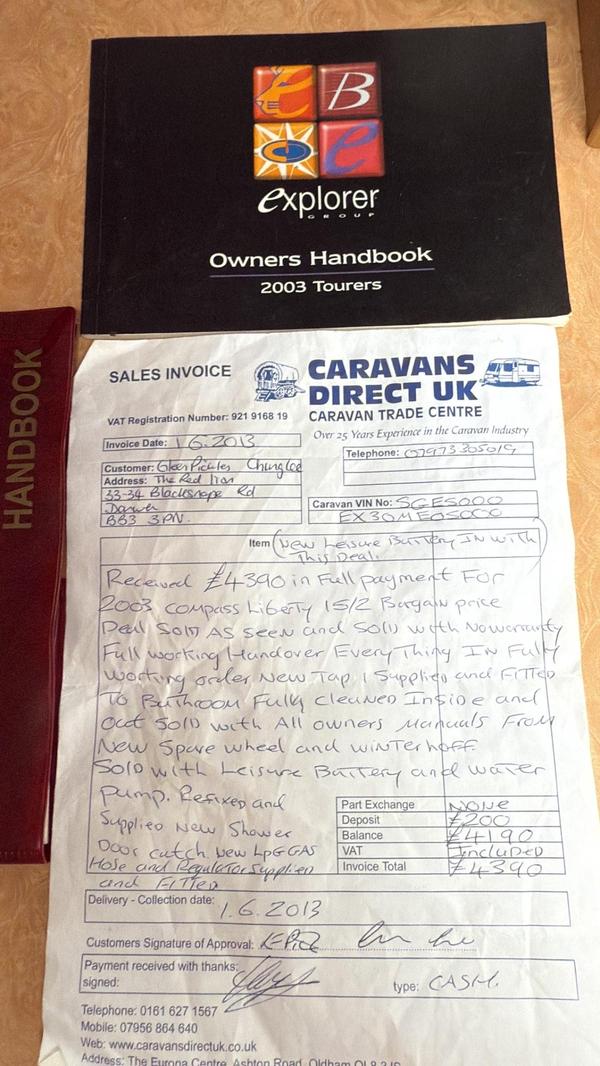 B
e
explorer
GROUP
Owners Handbook
2003 Tourers
HANDBOOK
SALES INVOICE
CARAVANS
DIRECT UK
CARAVAN TRADE CENTRE
VAT Registration Number: 921 9168 19
Over 25 Years Experience in the Caravan Industry
Invoice Date: 1.6.2013
Telephone: 07973305019
Customer: Pickles
Address: The Red Lion
33-34 Blacksnape Rd
Darwen
BB3 3PN.
Caravan VIN No: SGES000
EX30ME05000
Item (New Leisure Battery IN with
This Deal)
Received £4390 in Full payment For
2003 compass Liberty 15/2 Bargain price
Deal Sold AS seen and Sold with No warranty
Full working Handover EveryThing IN Fully
working order New Tap 1 Supplied and FITTED
To Bathroom Fully Cleaned Inside and
out Sold with All owners Manuals From
New Spare wheel and winterhoff
Sold with Leisure Battery and water
pump. Refixed and
Supplied New Shower
Door catch New LPG GAS
Hose and Regulator supplied
and Fitted
Part Exchange NONE
Deposit £200
Balance £4190
VAT Included
Invoice Total £4390
Delivery - Collection date: 1.6.2013
Customers Signature of Approval:
Payment received with thanks:
signed:
type: CASH.
Telephone: 0161 627 1567
Mobile: 07956 864 640
Web: www.caravansdirectuk.co.uk
Address: The Europa Centre, Ashton Road, Oldham OL8